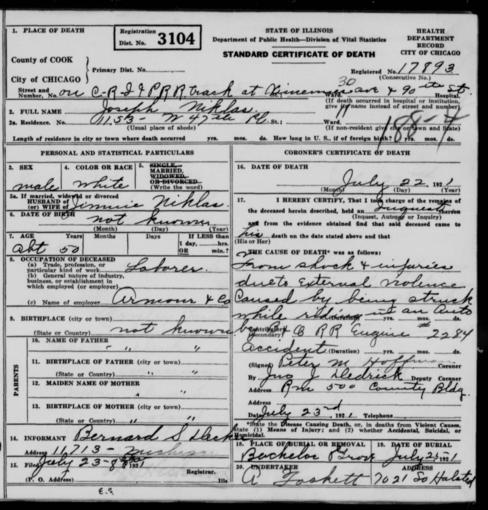 1. PLACE OF DEATH
Registration Dist. No. 3104
STATE OF ILLINOIS
Department of Public Health—Division of Vital Statistics
STANDARD CERTIFICATE OF DEATH
HEALTH DEPARTMENT RECORD CITY OF CHICAGO
County of COOK
City of CHICAGO
Primary Dist. No.
Registered No. 17893
(Consecutive No.)
Street and Number, No. on C-R I & P R R track at ave & 90th St.
Hospital.
(If death occurred in hospital or institution, give name instead of street and number)
2. FULL NAME Joseph Niklas
2a. Residence. No. 1153- W 47th Pl St.; Ward.
(Usual place of abode) (If non-resident give city or town and State)
188-4
Length of residence in city or town where death occurred yrs. mos. ds. How long in U. S., if of foreign birth? yrs. mos. ds.
PERSONAL AND STATISTICAL PARTICULARS
3. SEX
male
4. COLOR OR RACE
white
5. SINGLE, MARRIED, WIDOWED OR DIVORCED
(Write the word)
5a. If married, widowed or divorced
HUSBAND of (or) WIFE of Jennie Niklas
6. DATE OF BIRTH not known
(Month) (Day) (Year)
7. AGE Years Months Days
Abt 50
If LESS than 1 day, hrs. OR min.
8. OCCUPATION OF DECEASED
(a) Trade, profession, or particular kind of work. Laborer
(b) General nature of industry, business, or establishment in which employed (or employer)
(c) Name of employer Armour & Co
9. BIRTHPLACE (city or town) not known
(State or Country)
PARENTS
10. NAME OF FATHER " "
11. BIRTHPLACE OF FATHER (city or town)
(State or Country) " "
12. MAIDEN NAME OF MOTHER "
13. BIRTHPLACE OF MOTHER (city or town)
(State or Country) " "
14. INFORMANT Bernard S
Address 16713-
15. Filed July 23- 1921
Registrar.
(P. O. Address)
CORONER'S CERTIFICATE OF DEATH
16. DATE OF DEATH
July 22 1921
(Month) (Day) (Year)
17. I HEREBY CERTIFY, That I took charge of the remains of the deceased herein described, held an Inquest thereon
(Inquest, Autopsy or Inquiry)
and from the evidence obtained find that said deceased came to his death on the date stated above and that
(His or Her)
THE CAUSE OF DEATH* was as follows:
From shock & injuries
due to External violence
caused by being struck
while riding in an Auto
by R R Engine # 2284
accident (Duration) yrs. mos. ds.
(Signed) Peter M Hoffman Coroner
By Jas J Deputy Coroner
Rm 500 County Bldg
Date July 23d 1921 Telephone
*State the Disease Causing Death, or, in deaths from Violent Causes, State (1) Means of Injury; and (2) whether Accidental, Suicidal, or Homicidal.
18. PLACE OF BURIAL OR REMOVAL
Bachelor Grove
19. DATE OF BURIAL
July 1921
20. UNDERTAKER
A Foskett
ADDRESS
7021 So Halsted